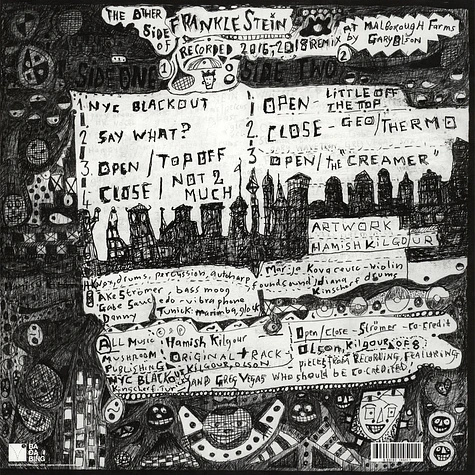 THE OTHER SIDE OF
FRANKLESTEIN
RECORDED 2016-2018 REMIX
AT MALBOROUGH FARMS by GARY OLSON
SIDE ONE 1
1. NYC BLACKOUT
2 SAY WHAT?
3. OPEN / TOP OFF
4. CLOSE / NOT 2 MUCH
SIDE TWO 2
1 OPEN - LITTLE OFF THE TOP
2. CLOSE - GEO/THERMO
3 OPEN/ the "CREAMER"
ARTWORK
HAMISH KILGOUR
drums, percussion, autoharp, found sound
Ake Strömer, bass moog
Danny Tunick: marimba, glock
Marija Kovacevic - violin
Kinscherf drums
All Music © ℗ Hamish Kilgour
MUSHROOM: ORIGINAL + RACK -
PUBLISHING - KILGOUR, OLSON
NYC BLACKOUT
Kinscherf, Tun
Open / Close - Strömer - co-credit
OLSON, KILGOUR & OF 8
PIECES FROM RECORDING, FEATURING
AND GREG VEGAS WHO SHOULD BE CO-CREDITED
BA
DA
BING